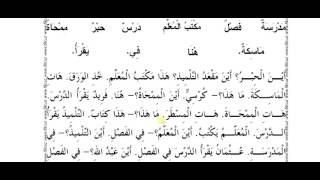 مَدْرَسَةٌ فَصْلٌ مَكْتَبُ الْمُعَلِّمِ دَرْسٌ حِبْرٌ مِمْحَاةٌ
مَاسِكَةٌ. هُنَا فِي. يَقْرَأُ.
أَيْنَ الْحِبْرُ؟ أَيْنَ مَقْعَدُ التِّلْمِيذِ؟ هَذَا مَكْتَبُ الْمُعَلِّمِ. خُذِ الْوَرَقَ. هَاتِ
الْمَاسِكَةَ. مَا هَذَا؟- كُرْسِيٌّ. أَيْنَ الْمِمْحَاةُ؟- هُنَا. فَرِيدٌ يَقْرَأُ الدَّرْسَ.
هَاتِ الْمِمْحَاةَ. هَاتِ الْمِسْطَرَةَ. مَا هَذَا؟- هَذَا كِتَابٌ. التِّلْمِيذُ يَقْرَأُ
الدَّرْسَ. الْمُعَلِّمُ يَكْتُبُ. أَيْنَ الْمُعَلِّمُ؟- فِي الْفَصْلِ. أَيْنَ التِّلْمِيذُ؟- فِي
الْمَدْرَسَةِ. عُثْمَانُ يَقْرَأُ الدَّرْسَ. أَيْنَ عَبْدُ اللهِ؟- فِي الْفَصْلِ